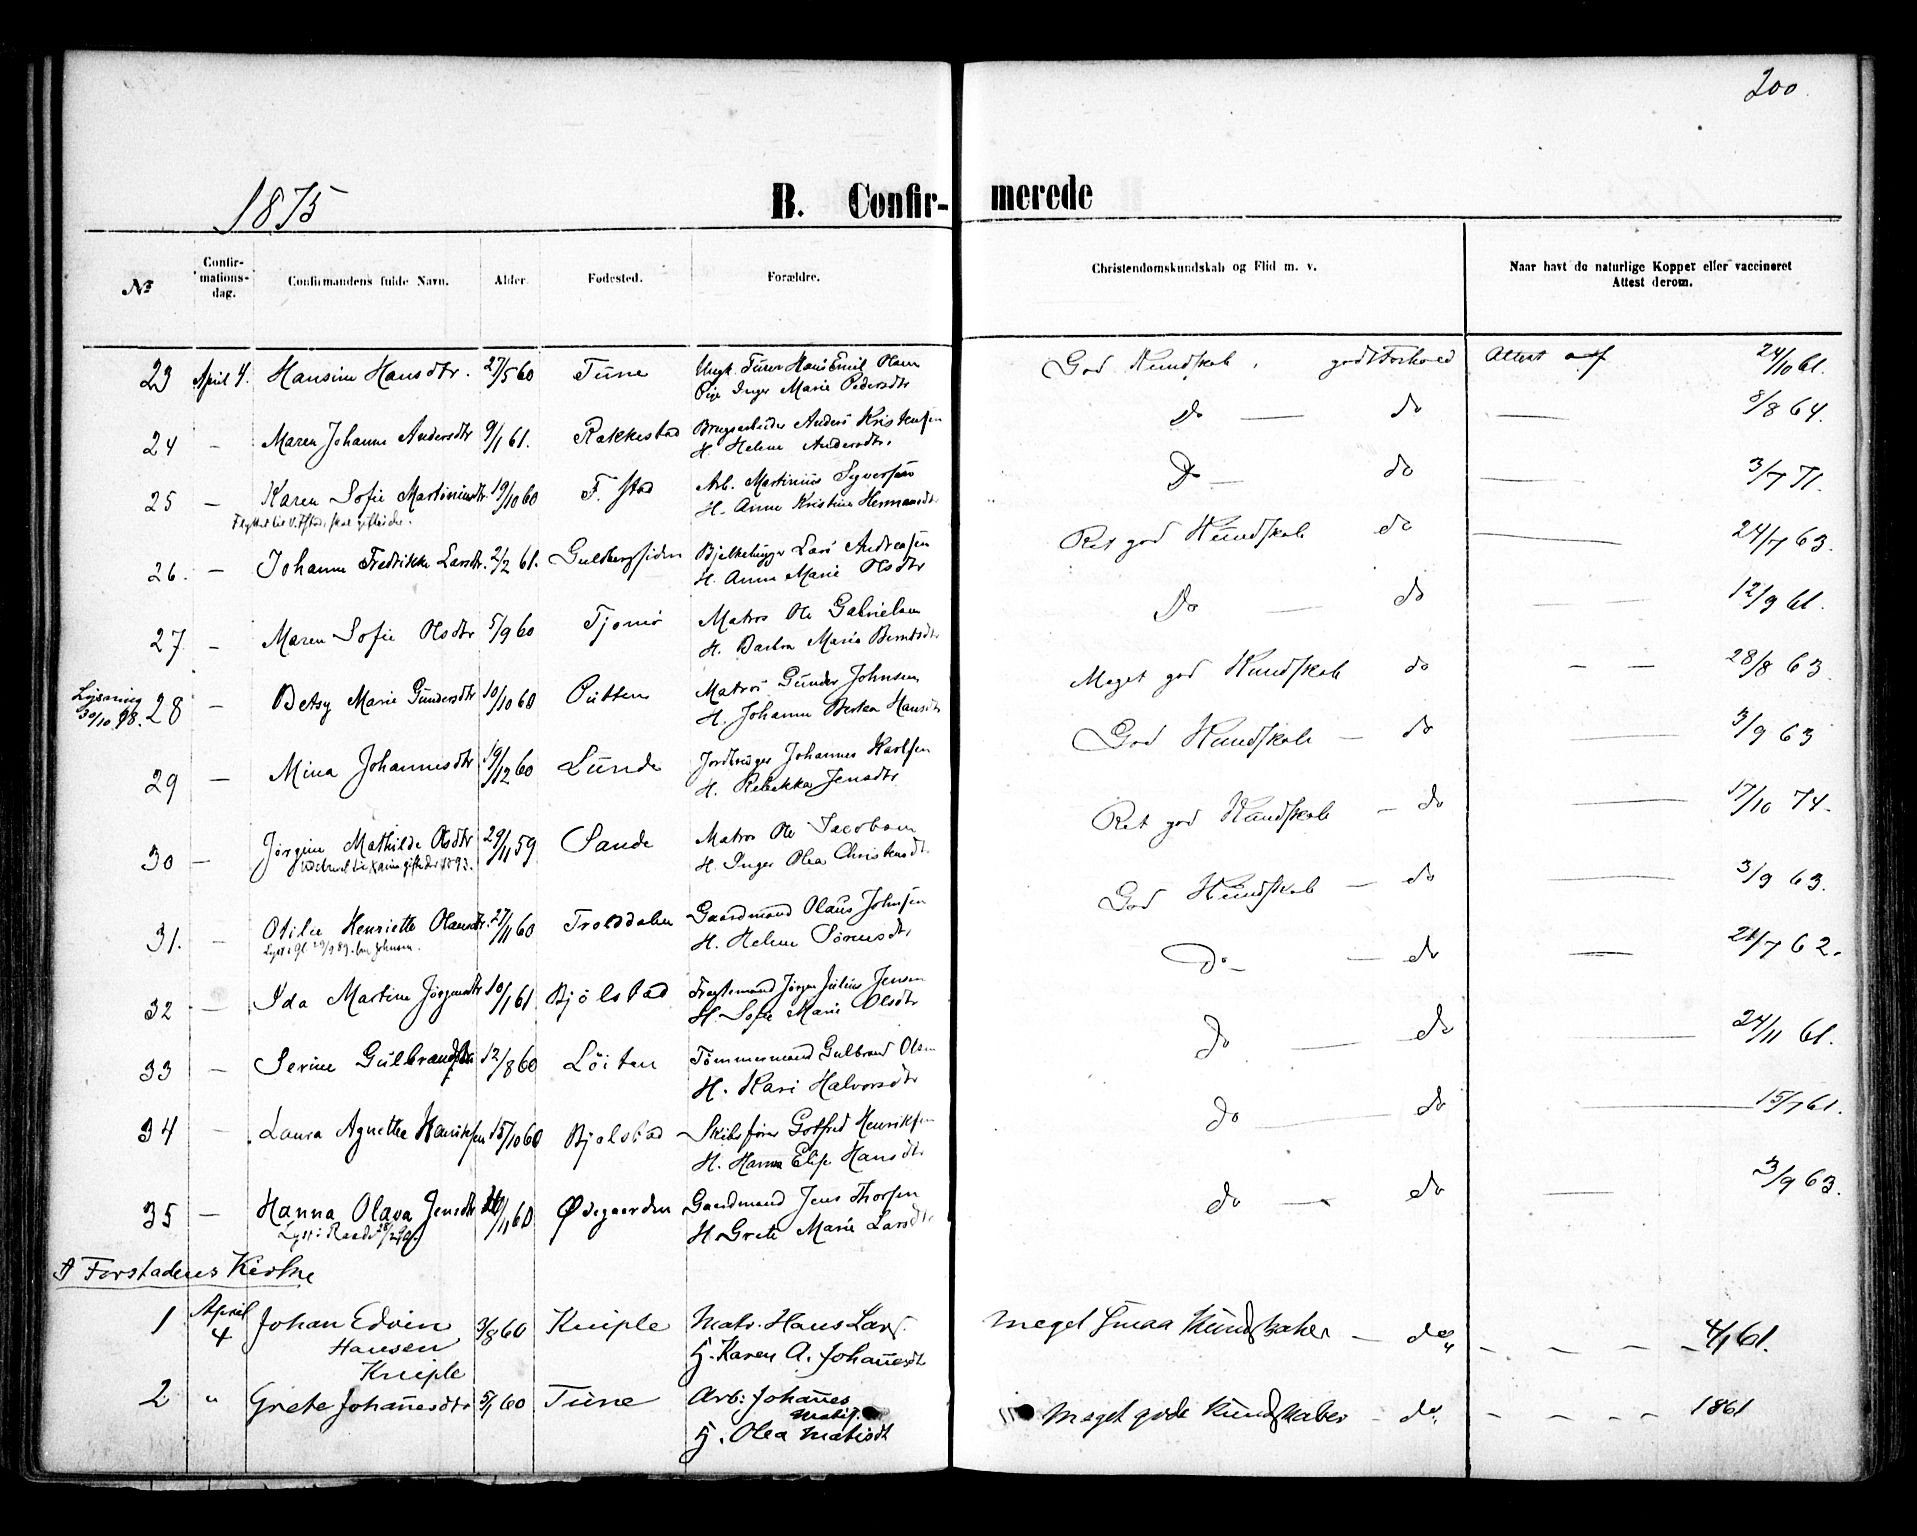 200
1875
B. Confir-merede
No
Confir-mations-dag.
Confirmandens fulde Navn.
Alder.
Fødested.
Forældre.
Christendomskundskab og Flid m. v.
Naar havt de naturlige Kopper eller vaccineret
Attest derom.
23 April 4. Hansine Hansdtr. 27/5 60 Tune Ungk. Hans Emil Olsen God Kundskab. godt Forhold Attest af 24/10 61.
Pige Inger Marie Pedersdtr
24 - Maren Johanne Andersdtr 9/1 61. Rakkestad Brugsarbeider Anders Kristensen Do - do - 8/8 64.
H. Helene Andersdtr.
25 - Karen Sofie Martinusdtr. 19/10 60 F. stad Arb. Martinius Syversen Do - do - 3/7 71.
H. Anne Kristine Hermansdtr
26. - Johanne Fredrikke Larsdtr. 2/2 61. Guldbergsiden Bjelkehugger Lars Andreasen Ret god Kundskab do - 24/7 63.
H. Anne Marie Olsdtr
27 - Maren Sofie Olsdtr 5/9 60 Tjømø Matros Ole Gabrielsen Do - do - 12/9 61.
H. Barbra Maria Berntsdtr
Lysning
30/10 98. 28 - Betsy Marie Gundersdtr 10/10 60 Putten Matros Gunder Johnsen Meget god Kundskab do - - 28/8 63
H. Johanne Bertea Hansdtr
29 - Mina Johannesdtr 19/12 60 Lunde Jordbruger Johannes Karlsen God Kundskab - do - 3/9 63
H. Rebekka Jensdtr
30 - Jørgine Mathilde Olsdtr 29/11 59 Sande Matros Ole Jacobsen Ret god Kundskab - do - 17/10 74.
H. Inger Olea Christensdtr
31. - Otilie Henriette Olausdtr. 27/11 60 Trolddalen Gaardmand Olaus Johnsen God Kundskab - do - 3/9 63.
H. Helene Sørensdtr
32 - Ida Martine Jørgensdtr 10/1 61 Bjølstad Fragtemand Jørgen Julius Jensen Do - do - 21/7 62.
H. Sofie Marie Olsdtr
33 - Serine Gulbrandsdtr 12/8 60 Løiten Tømmermand Gulbrand Olsen do - do - 24/11 61.
H. Kari Halvorsdtr
34 - Laura Agnethe Henriksen 15/10 60 Bjølstad Skibsfører Gotfred Henriksen do - do - 15/7 61.
H. Hanna Elise Hansdtr
35 - Hanna Olava Jensdtr /11 60 Ødegaarden Gaardmand Jens Thorsen do - do - 3/9 63.
H. Grete Marie Larsdtr
I Forstadens Kirke
1 April 4 Johan Edvin 3/8 60 Kniple Matr. Hans Lars. Meget smaa Kundskaber - do - - - - 4/1 61.
Hansen H. Karen A. Johannesdt
Kniple
2 " Grete Johannesdtr 5/1 60 Tune Arb: Johannes Meget gode Kundskaber - do - - - - 1861
Matis.
H. Olea Matisdt